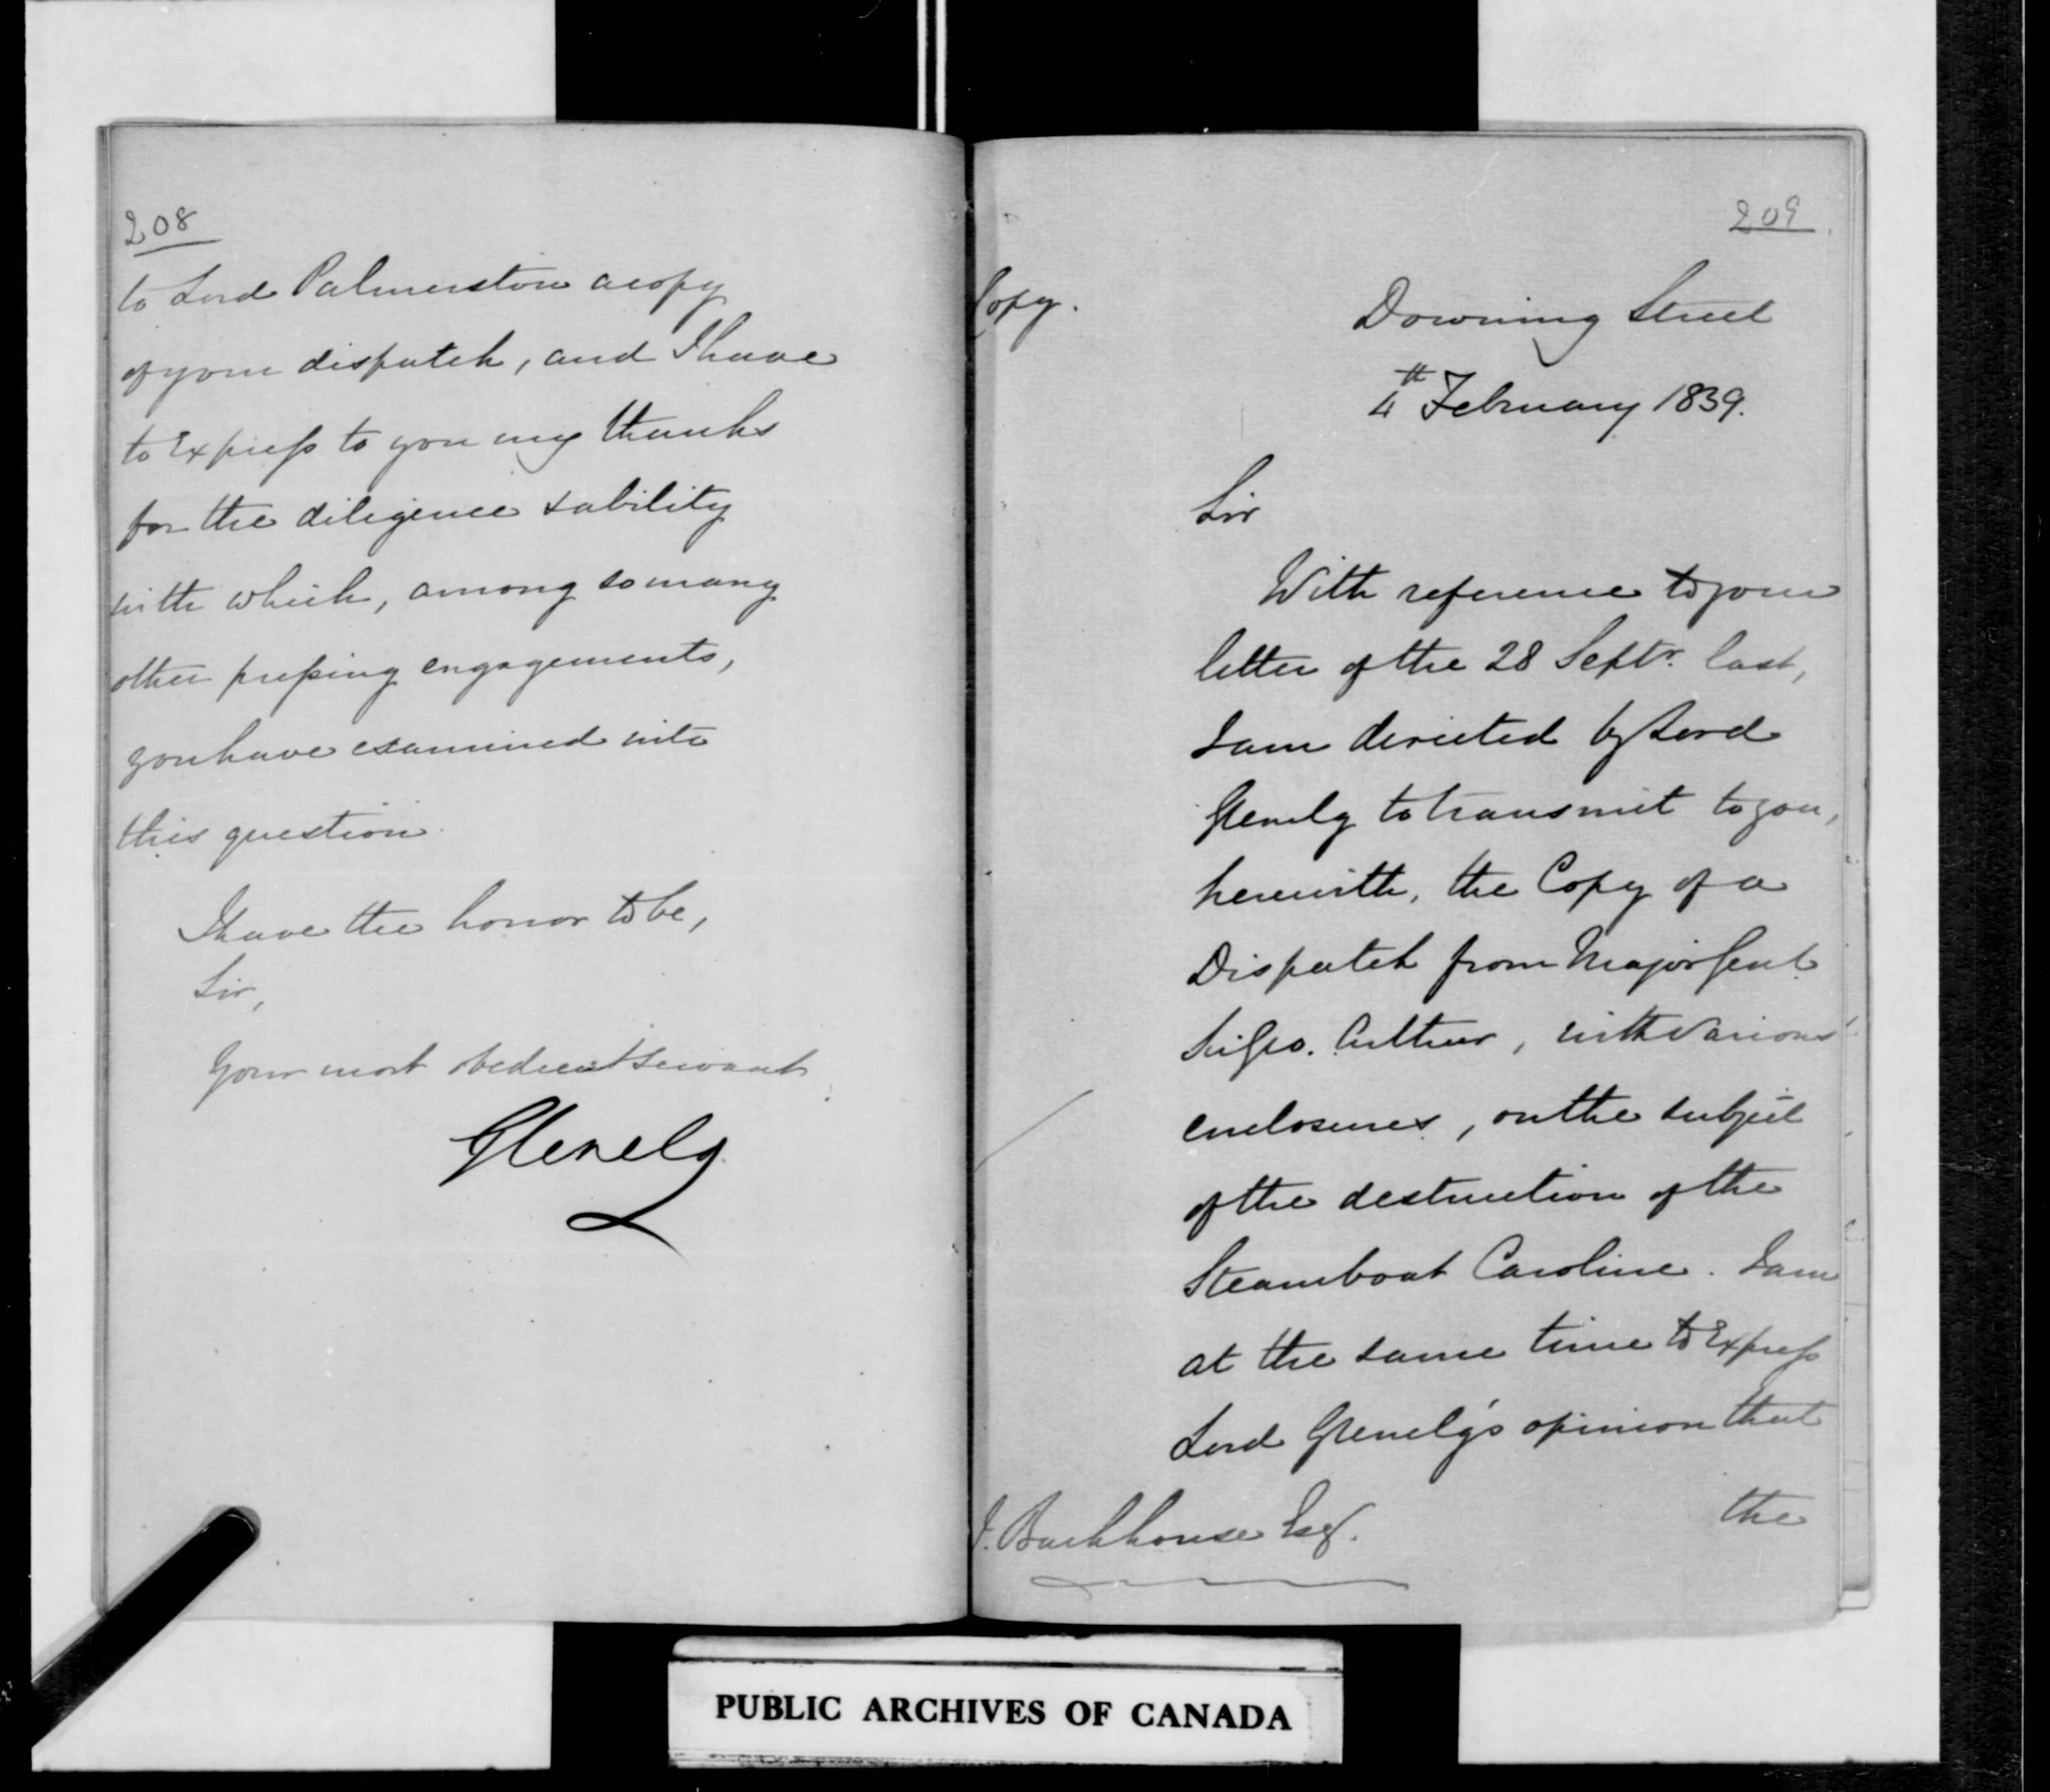 208
to Lord Palmerston a copy
of your dispatch, and I have
to Express to you my thanks
for the diligence & ability
with which, among so many
other pressing engagements,
you have examined into
this question.
I have the honor to be,
Sir,
Your most obedient servant
Glenelg
209
Copy.
Downing Street
4th February 1839.
Sir
With reference to your
letter of the 28 Septr. last,
I am directed by Lord
Glenelg to transmit to you,
herewith, the Copy of a
Dispatch from Major Genl.
Sir Geo. Arthur, with various
enclosures, on the subject
of the destruction of the
Steamboat Caroline. I am
at the same time to Express
Lord Glenelg's opinion that
the
J. Backhouse Esq.
PUBLIC ARCHIVES OF CANADA